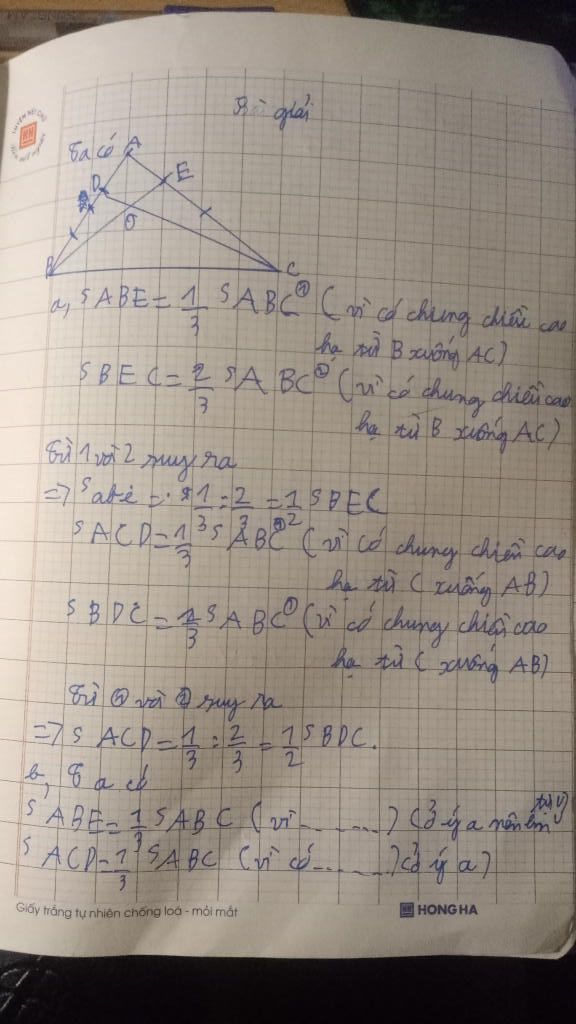 Bài giải
Ta có
A
D
E
O
B
C
a, S ABE = 1/3 S ABC ① (vì có chung chiều cao
hạ từ B xuống AC)
S BEC = 2/3 S ABC ② (vì có chung chiều cao
hạ từ B xuống AC)
Từ 1 và 2 suy ra
=> S abe = 1/3 : 2/3 = 1/2 S BEC
S ACD = 1/3 S ABC (vì có chung chiều cao
hạ từ C xuống AB)
S BDC = 2/3 S ABC (vì có chung chiều cao
hạ từ C xuống AB)
Từ và suy ra
=> S ACD = 1/3 : 2/3 = 1/2 S BDC.
b, Ta có
S ABE = 1/3 S ABC (vì ........) (ở ý a nên em
S ACD = 1/3 S ABC (vì có ........) (ở ý a)
Giấy trắng tự nhiên chống loá - mỏi mắt
HONG HA